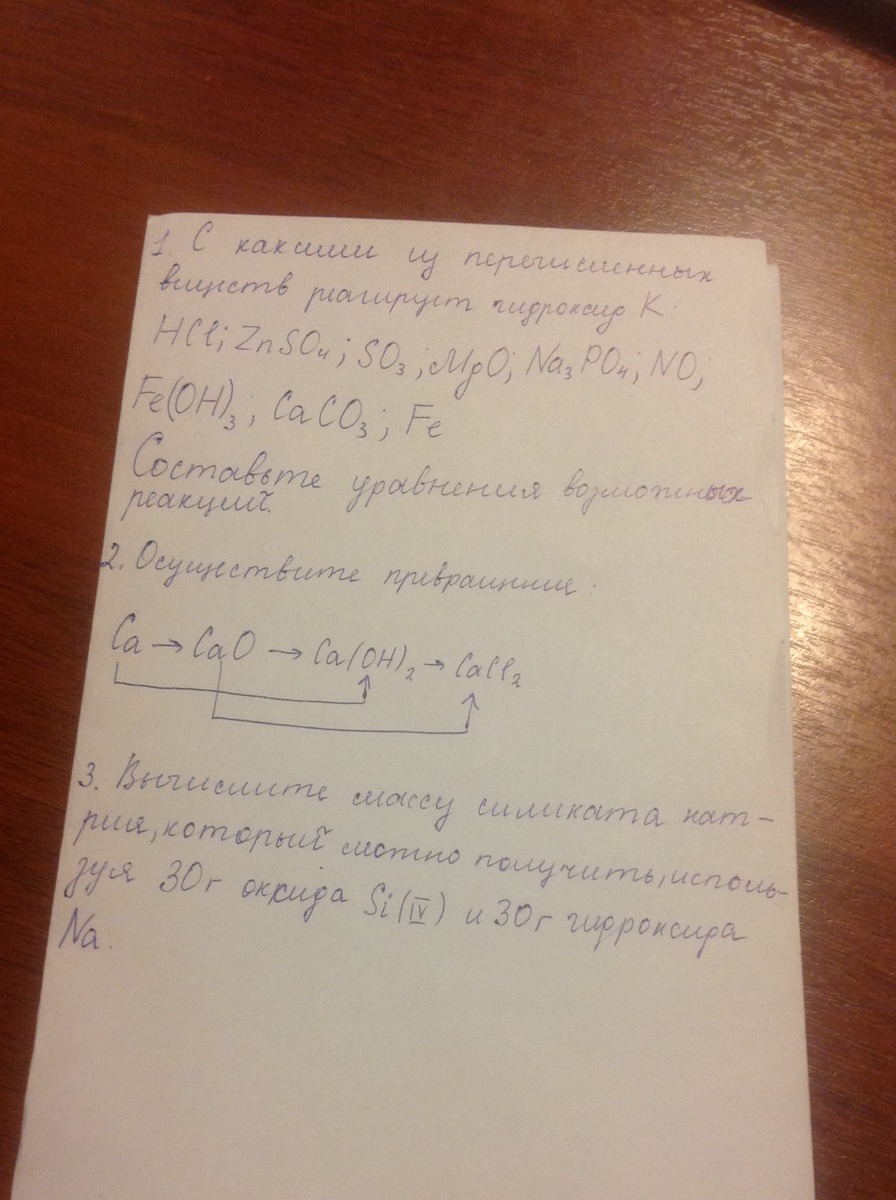 1. С какими из перечисленных
веществ реагирует гидроксид K:
HCl; ZnSO₄; SO₃; MgO; Na₃PO₄; NO;
Fe(OH)₃; CaCO₃; Fe
Составьте уравнения возможных
реакций.
2. Осуществите превращение:
Ca → CaO → Ca(OH)₂ → CaCl₂
3. Вычислите массу силиката нат-
рия, который можно получить, исполь-
зуя 30г оксида Si(IV) и 30г гидроксида
Na.